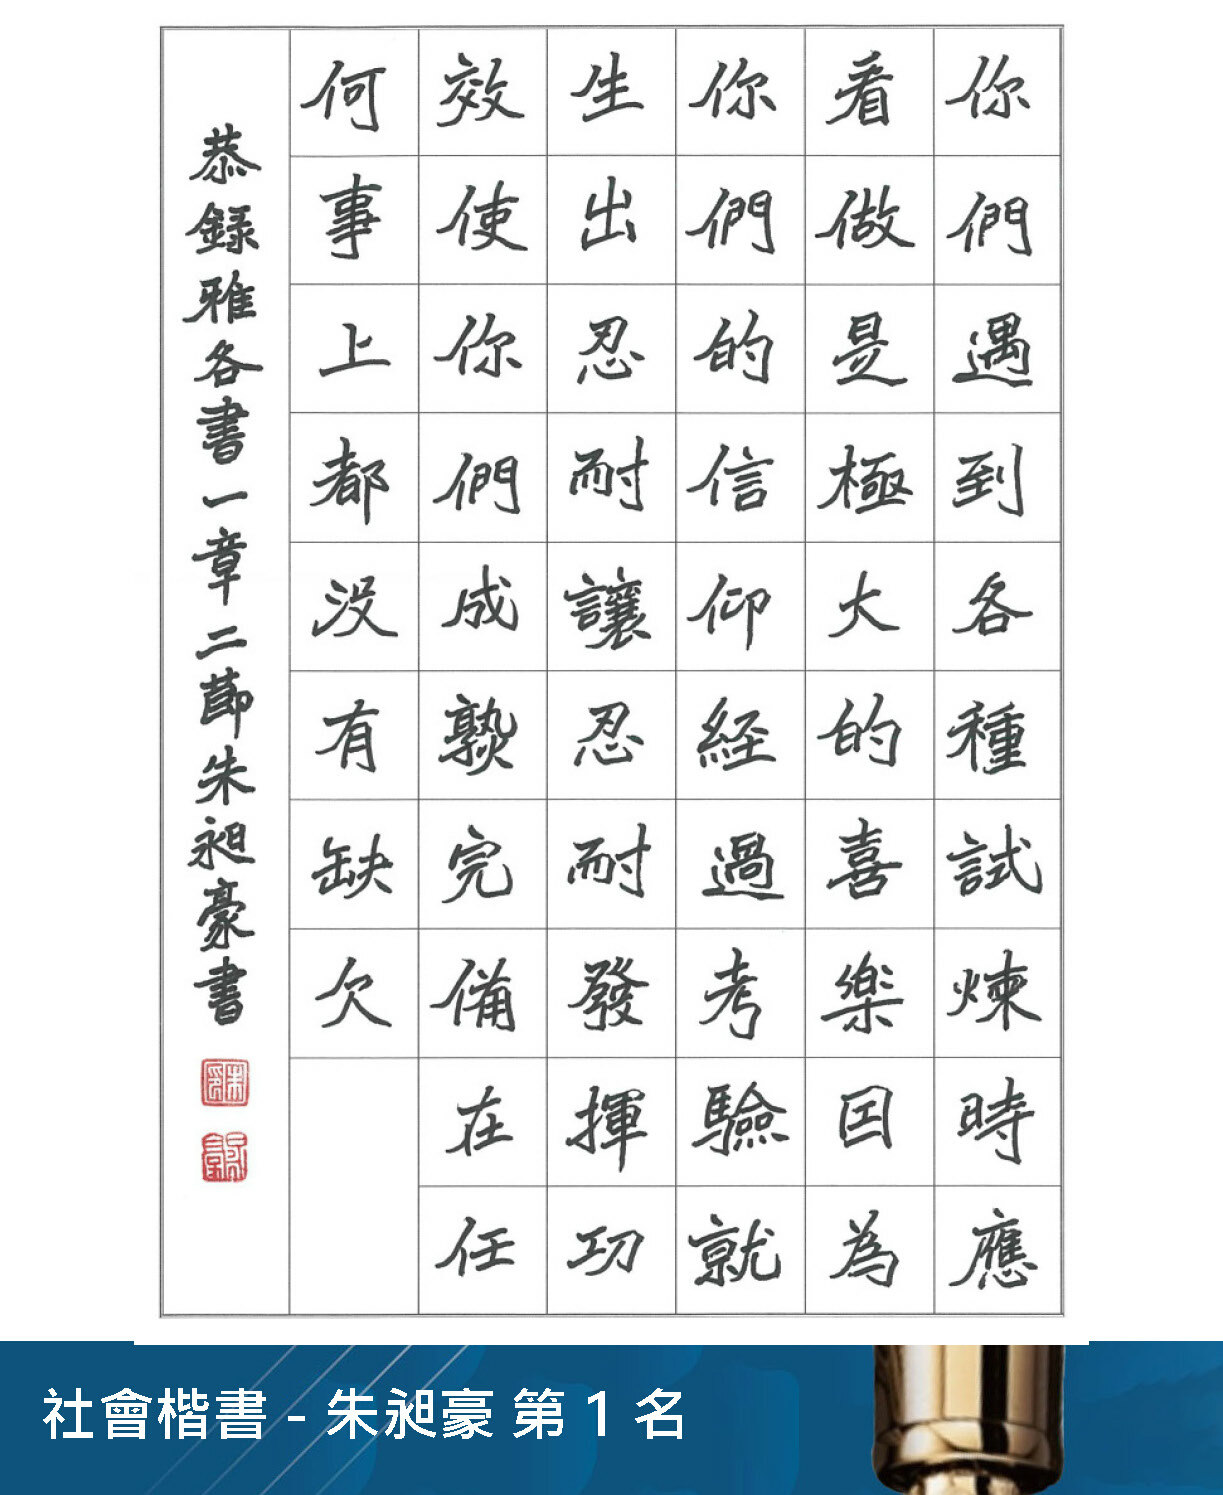 你們遇到各種試煉時應
看做是極大的喜樂因為
你們的信仰経過考驗就
生出忍耐讓忍耐發揮功
效使你們成熟完備在任
何事上都没有缺欠
恭録雅各書一章二節朱昶豪書
社會楷書 - 朱昶豪 第 1 名